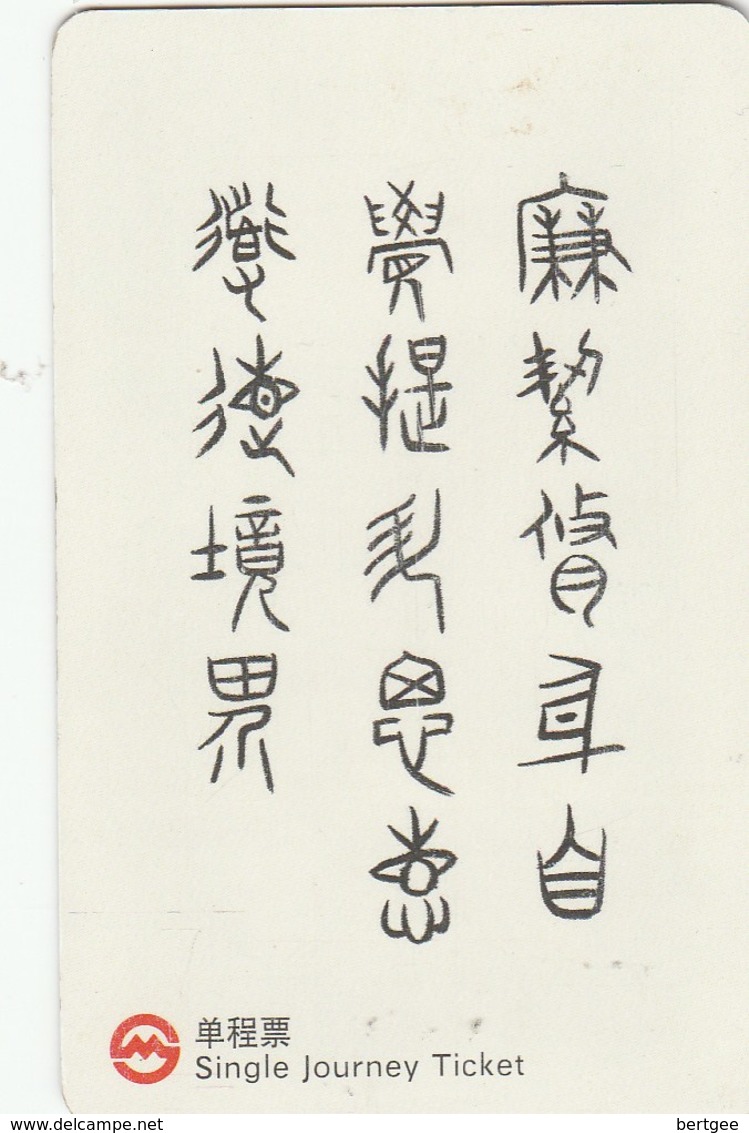 廉絜脩身自
覺提升思想
道德境界
单程票
Single Journey Ticket
www.delcampe.net
bertgee